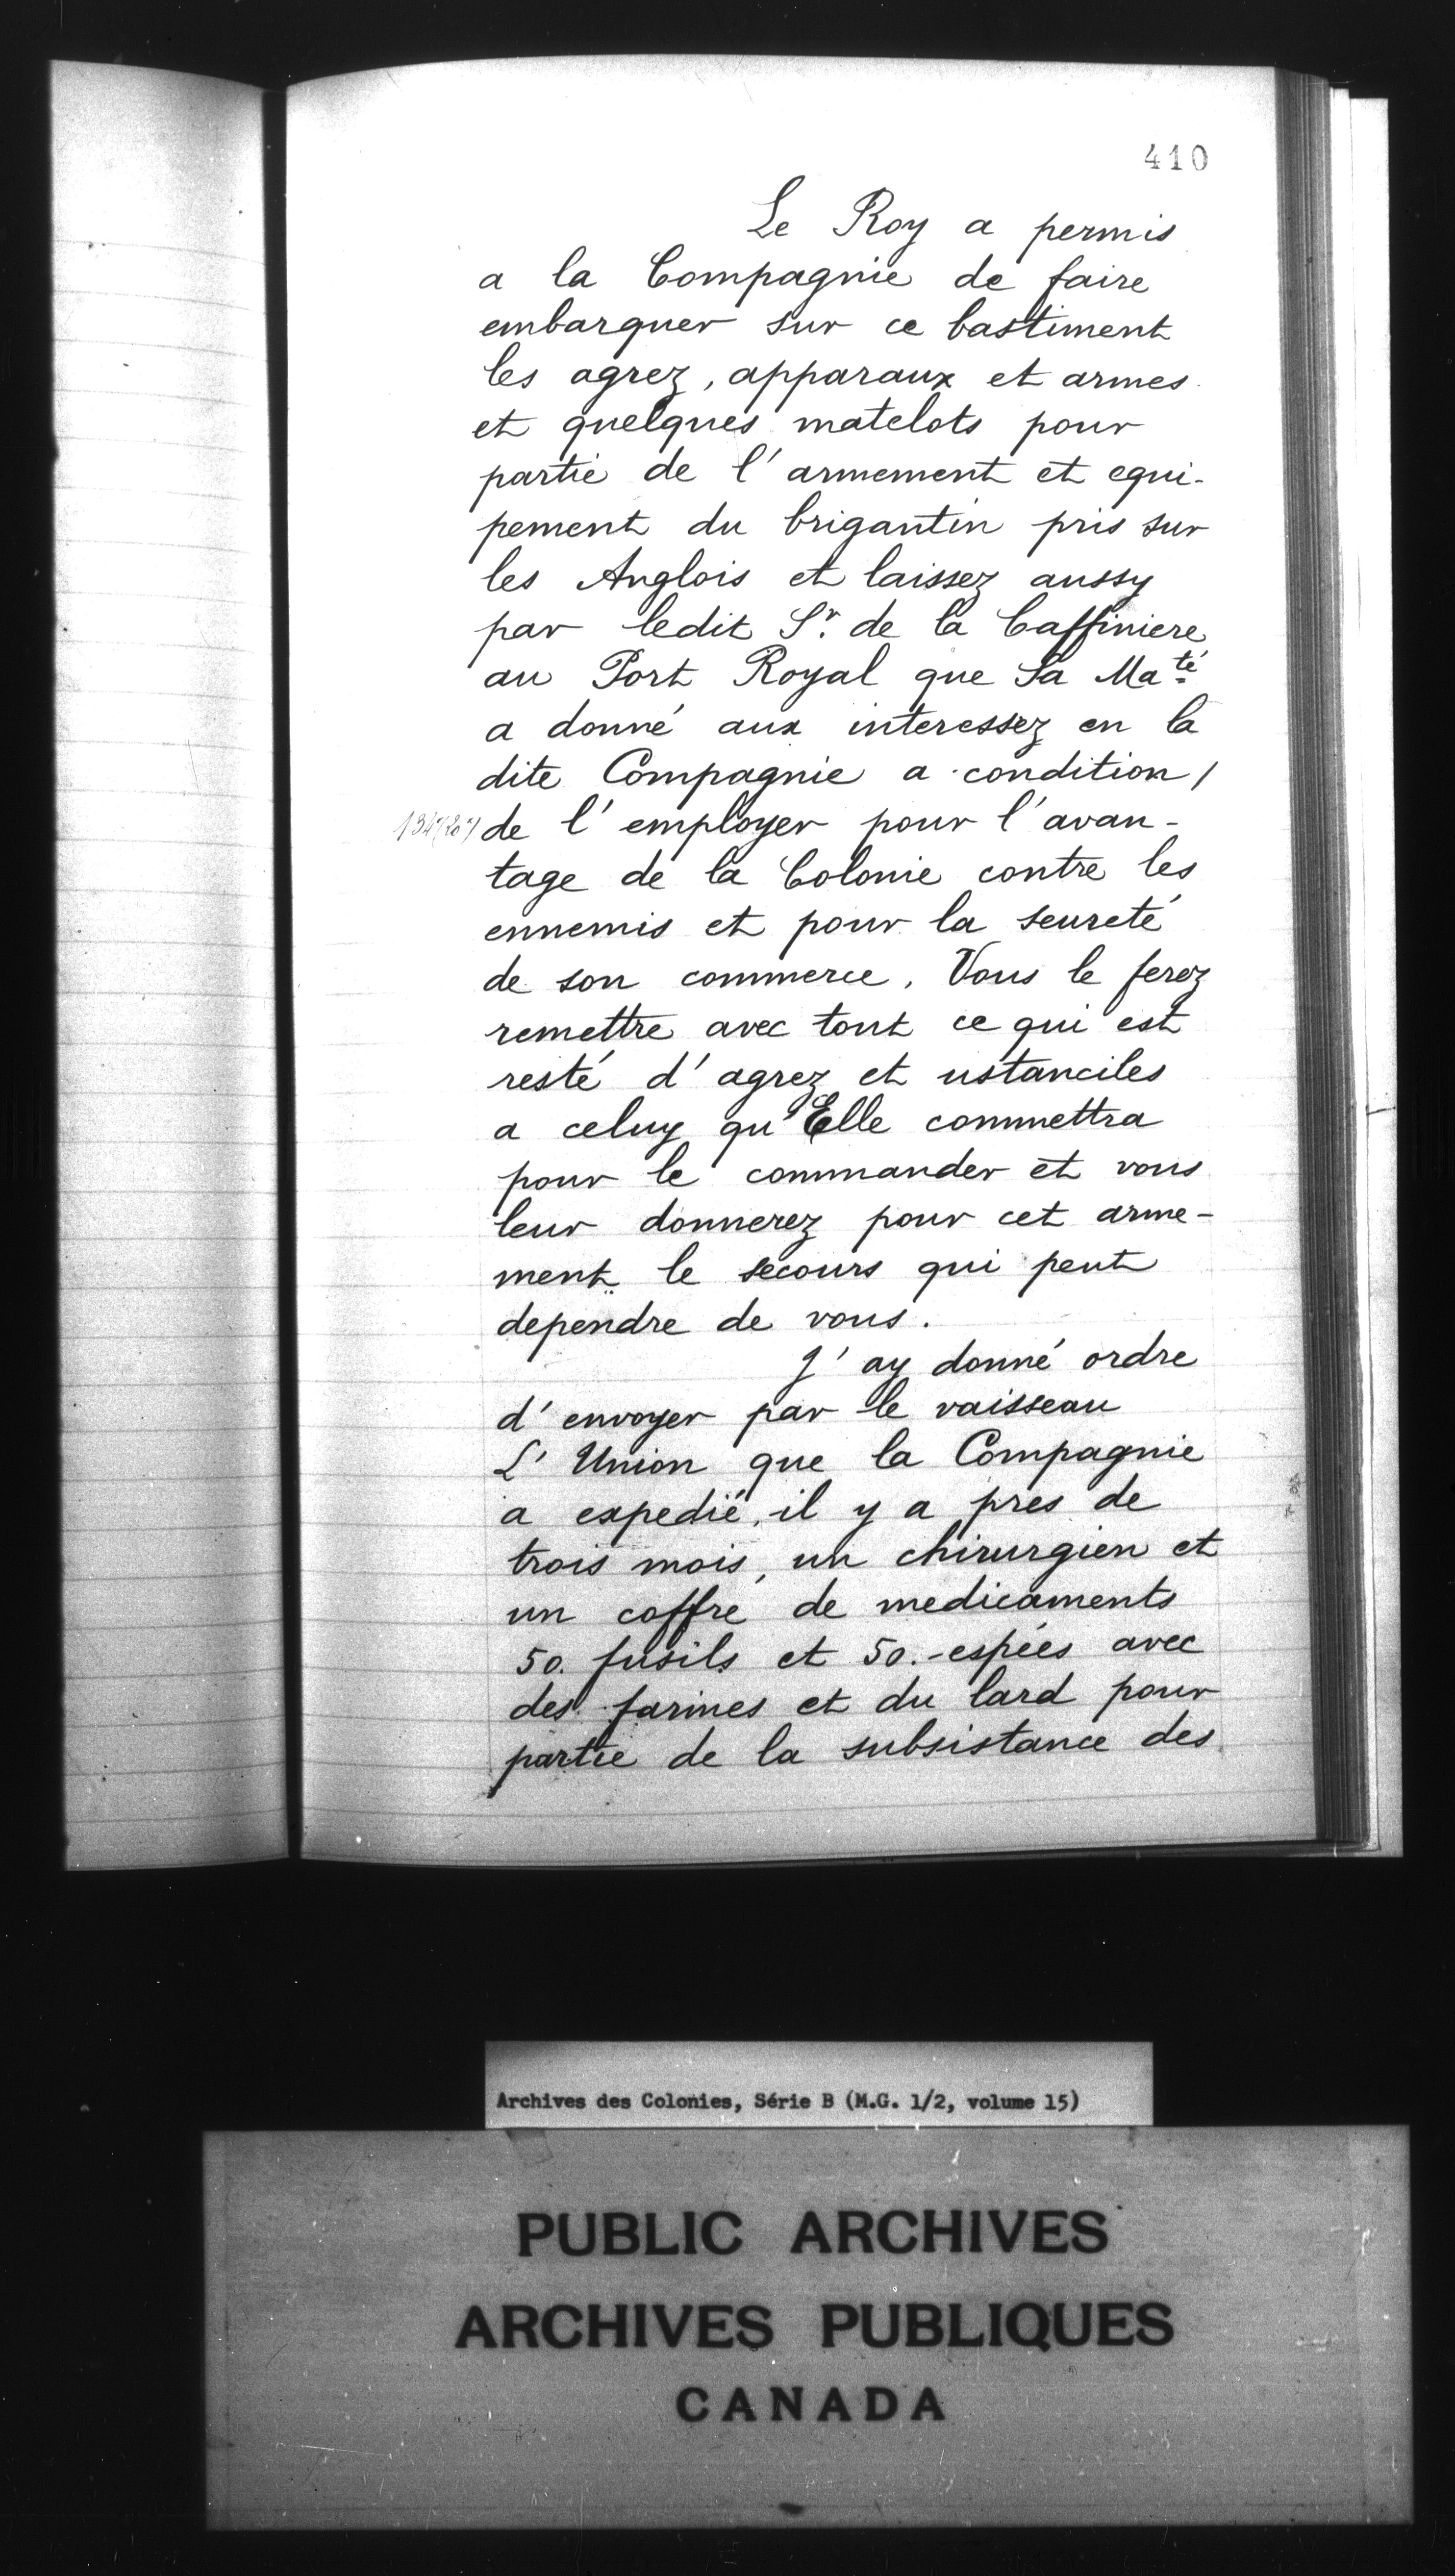 410
Le Roy a permis
a la Compagnie de faire
embarquer sur ce bastiment
les agrez, apparaux et armes
et quelques matelots pour
partie de l'armement et equi-
pement du brigantin pris sur
les Anglois et laissez aussy
par ledit Sr. de la Caffiniere
au Port Royal que Sa Maté
a donné aux interessez en la
dite Compagnie a condition /
de l'employer pour l'avan-
tage de la Colonie contre les
ennemis et pour la seureté
de son commerce. Vous le ferez
remettre avec tout ce qui est
resté d'agrez et ustanciles
a celuy qu'Elle commettra
pour le commander et vous
leur donnerez pour cet arme-
ment le secours qui peut
dependre de vous.
J'ay donné ordre
d'envoyer par le vaisseau
L'Union que la Compagnie
a expedié, il y a pres de
trois mois, un chirurgien et
un coffre de medicaments
50. fusils et 50.-espées avec
des farines et du lard pour
partie de la subsistance des
Archives des Colonies, Série B (M.G. 1/2, volume 15)
PUBLIC ARCHIVES
ARCHIVES PUBLIQUES
CANADA